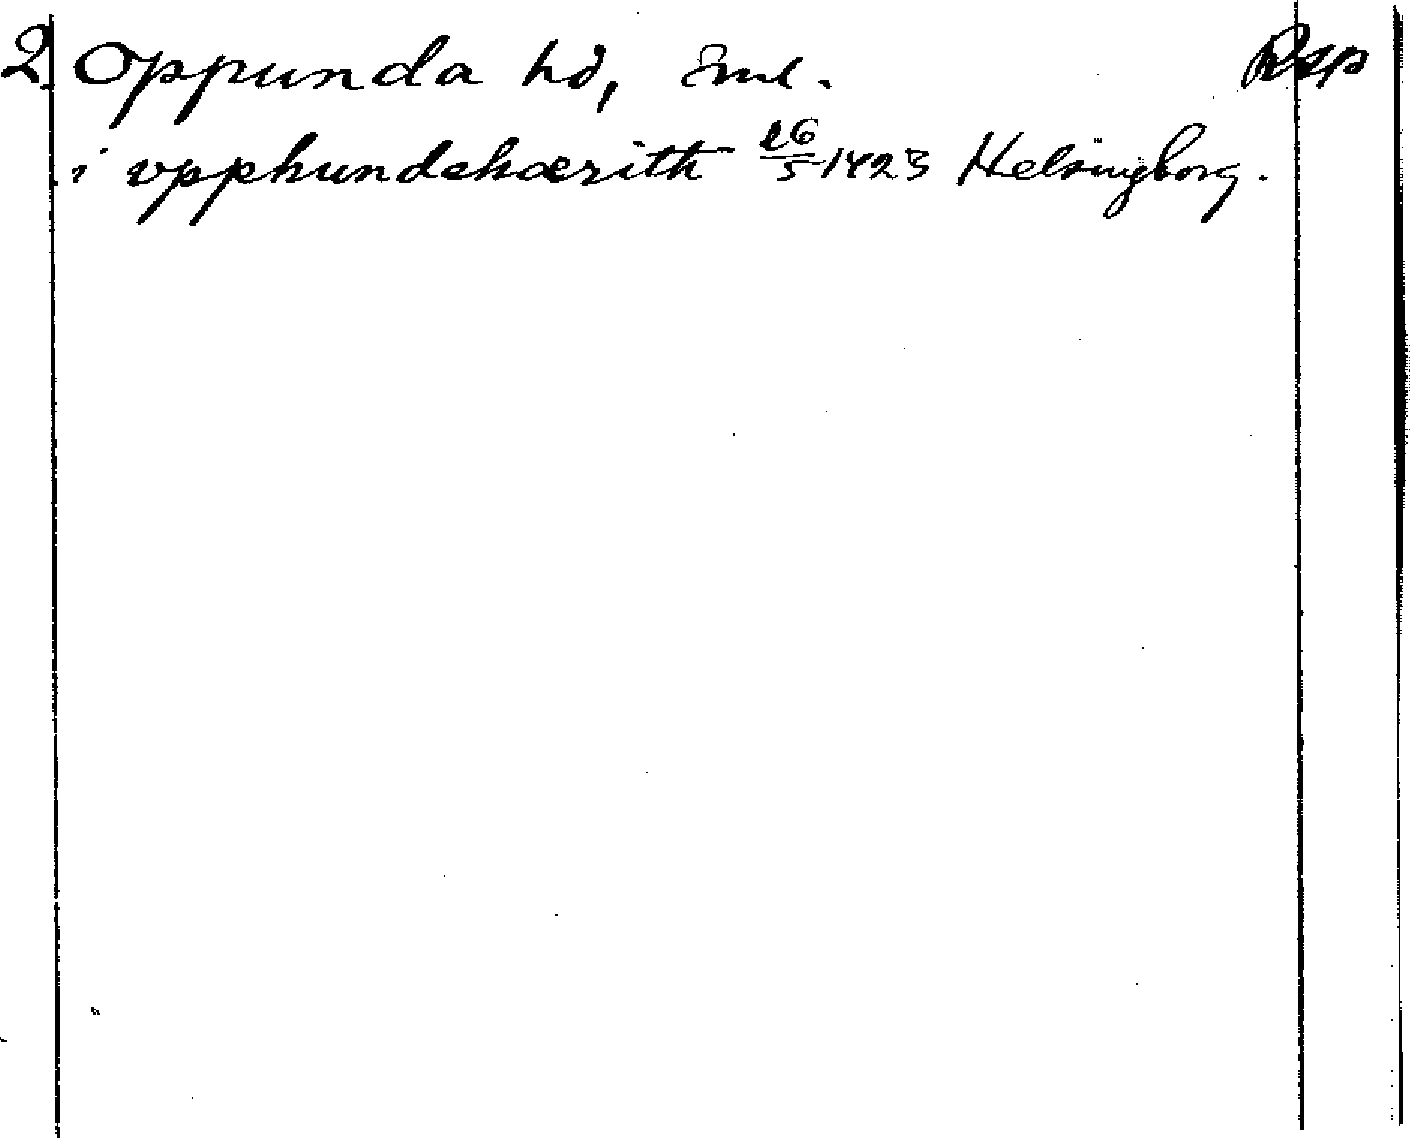 2. Oppunda hd, Sml. Rsp
i vpphundehærith 26/5 1423 Helsingborg.